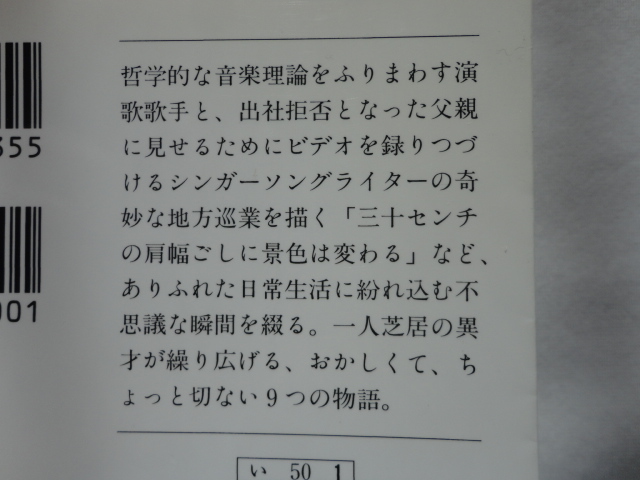 哲学的な音楽理論をふりまわす演
歌歌手と、出社拒否となった父親
に見せるためにビデオを録りつづ
けるシンガーソングライターの奇
妙な地方巡業を描く「三十センチ
の肩幅ごしに景色は変わる」など、
ありふれた日常生活に紛れ込む不
思議な瞬間を綴る。一人芝居の異
才が繰り広げる、おかしくて、ち
ょっと切ない9つの物語。
い 50 1
355
001